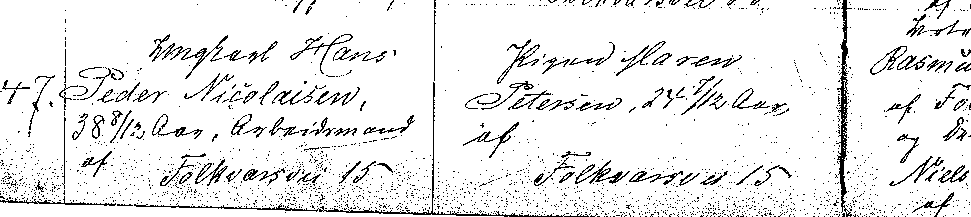 47.
Ungkarl Hans
Peder Nicolaisen,
38 8/12 Aar, Arbeidsmand
af
Folkvarsvei 15
Pigen Maren
Petersen, 24 7/12 Aar,
af
Folkvarsvei 15
af
Rasmu
af Fo
og
Niels
af